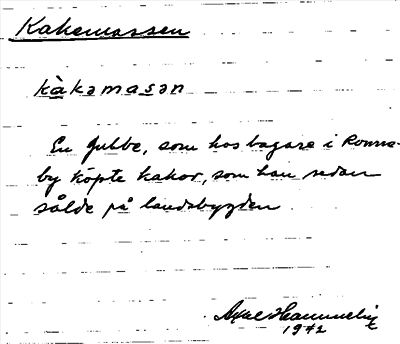 Kakemassen
kàkəmasən
En gubbe, som hos bagare i Ronne-
by köpte kakor, som han sedan
sålde på landsbygden.
Axel Hammelin
1942